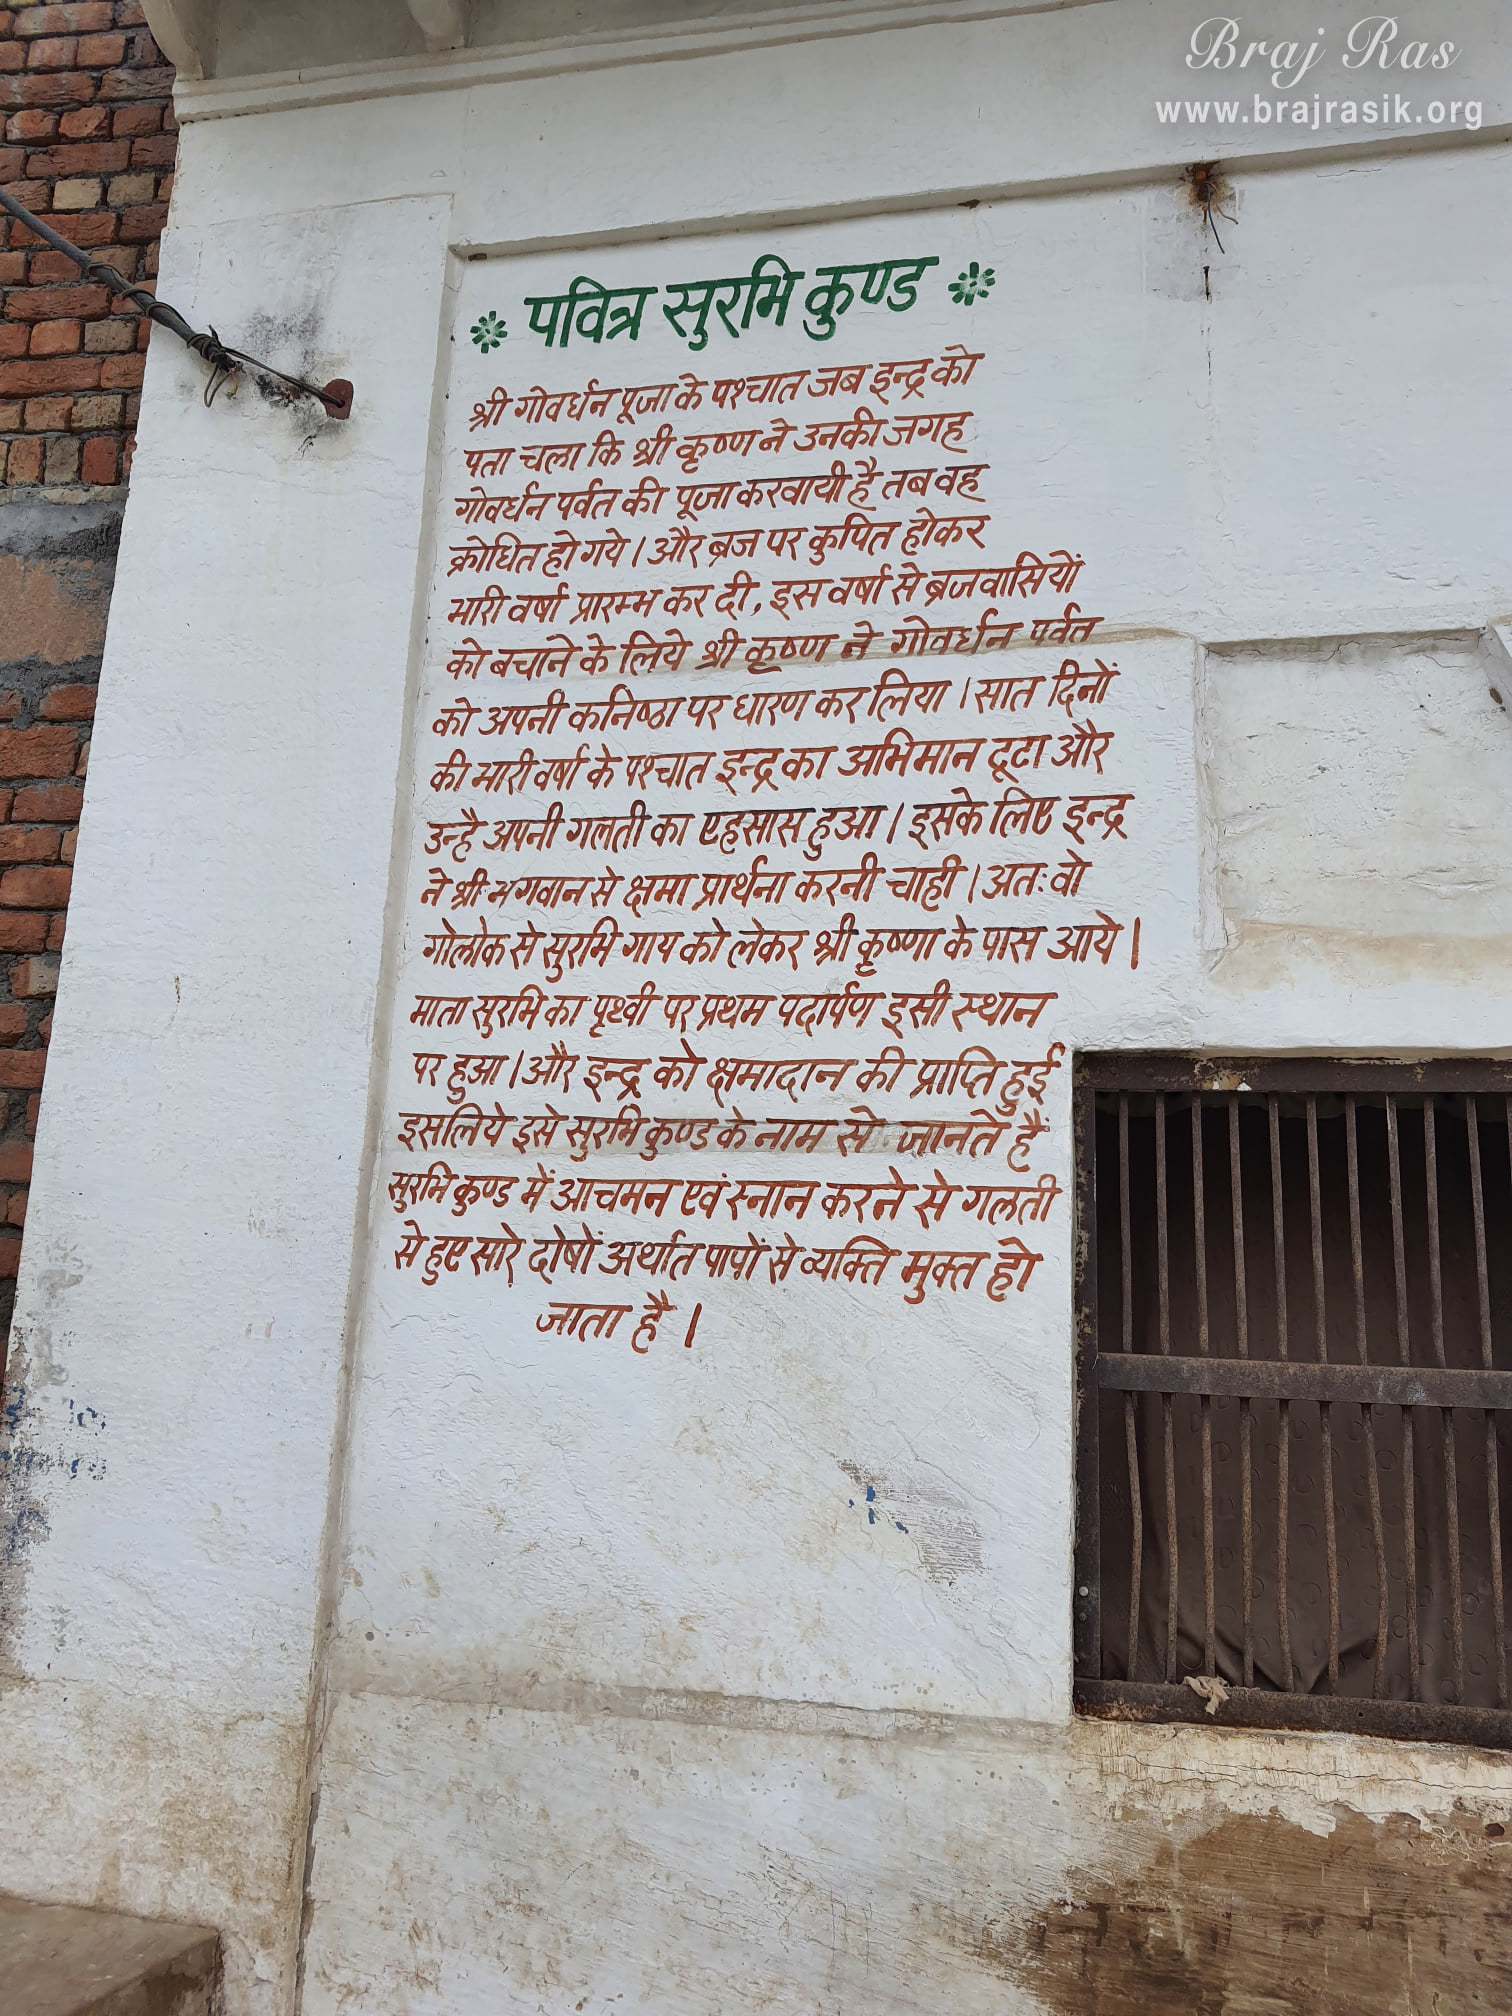 Braj Ras
www.brajrasik.org
पवित्र सुरभि कुण्ड
श्री गोवर्धन पूजा के पश्चात जब इन्द्र को
पता चला कि श्री कृष्ण ने उनकी जगह
गोवर्धन पर्वत की पूजा करवायी है तब वह
क्रोधित हो गये। और ब्रज पर कुपित होकर
भारी वर्षा प्रारम्भ कर दी, इस वर्षा से ब्रजवासियों
को बचाने के लिये श्री कृष्ण ने गोवर्धन पर्वत
को अपनी कनिष्ठा पर धारण कर लिया। सात दिनों
की भारी वर्षा के पश्चात इन्द्र का अभिमान टूटा और
उन्है अपनी गलती का एहसास हुआ। इसके लिए इन्द्र
ने श्री भगवान से क्षमा प्रार्थना करनी चाही। अतः वो
गोलोक से सुरभि गाय को लेकर श्री कृष्णा के पास आये।
माता सुरभि का पृथ्वी पर प्रथम पदार्पण इसी स्थान
पर हुआ। और इन्द्र को क्षमादान की प्राप्ति हुई
इसलिये इसे सुरभि कुण्ड के नाम से जानते हैं
सुरभि कुण्ड में आचमन एवं स्नान करने से गलती
से हुए सारे दोषों अर्थात पापों से व्यक्ति मुक्त हो
जाता है।